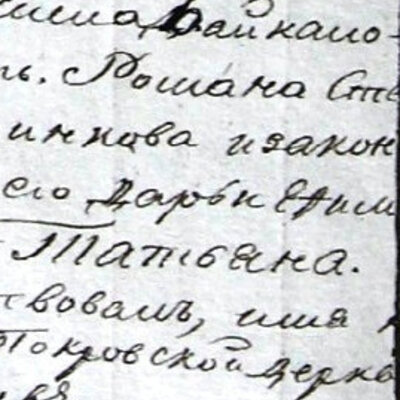 Байкало-
ть. Романа Сте
инкова и закон
его Дарьи Ефим
Татьяна.
твовалъ, имя н
Покровской церкв